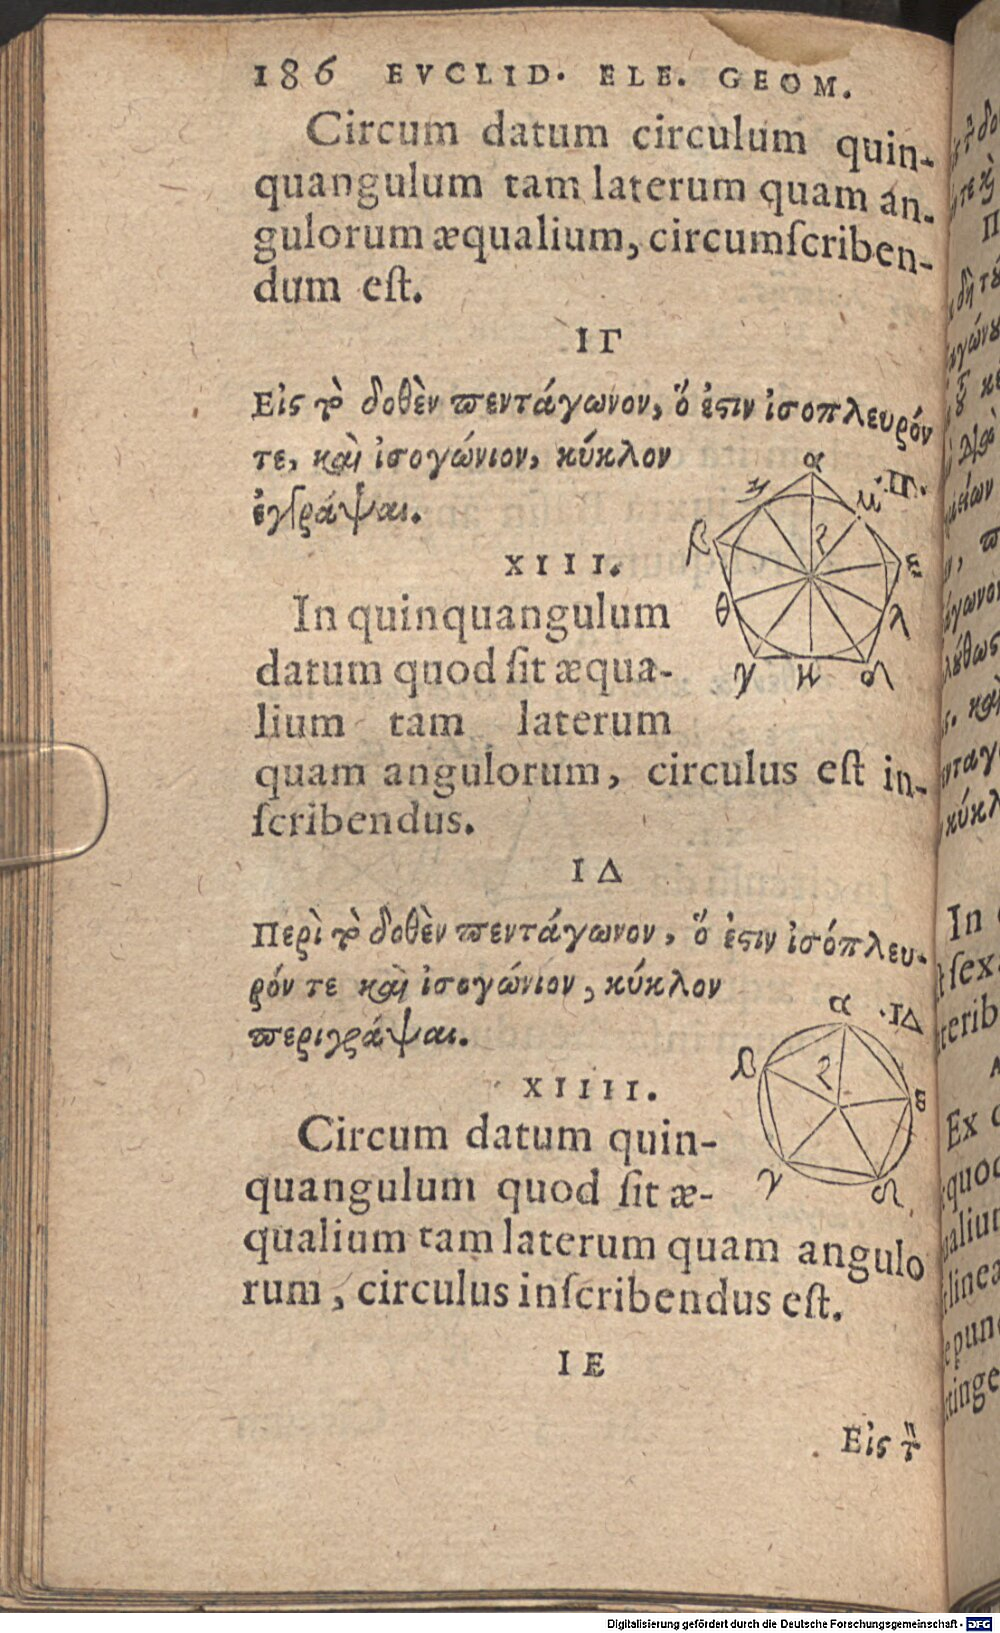 186 EVCLID. ELE. GEOM.
Circum datum circulum quin-
quangulum tam laterum quam an-
gulorum æqualium, circumſcriben-
dum eſt.
ΙΓ
Εἰς τὸ δοθὲν πεντάγωνον, ὅ ἐστιν ἰσοπλευρόν
τε, καὶ ἰσογώνιον, κύκλον
ἐγγράψαι.
XIII.
In quinquangulum
datum quod ſit æqua-
lium tam laterum
quam angulorum, circulus eſt in-
ſcribendus.
ΙΔ
Περὶ τὸ δοθὲν πεντάγωνον, ὅ ἐστιν ἰσόπλευ-
ρόν τε καὶ ἰσογώνιον, κύκλον
περιγράψαι.
XIIII.
Circum datum quin-
quangulum quod ſit æ-
qualium tam laterum quam angulo
rum, circulus inſcribendus eſt.
ΙΕ
Εἰς τὸν
α
ΙΓ.
β
ζ
ε
θ
λ
γ κ δ
α ·ΙΔ
β
ζ
ε
γ
δ
Digitalisierung gefördert durch die Deutsche Forschungsgemeinschaft - DFG